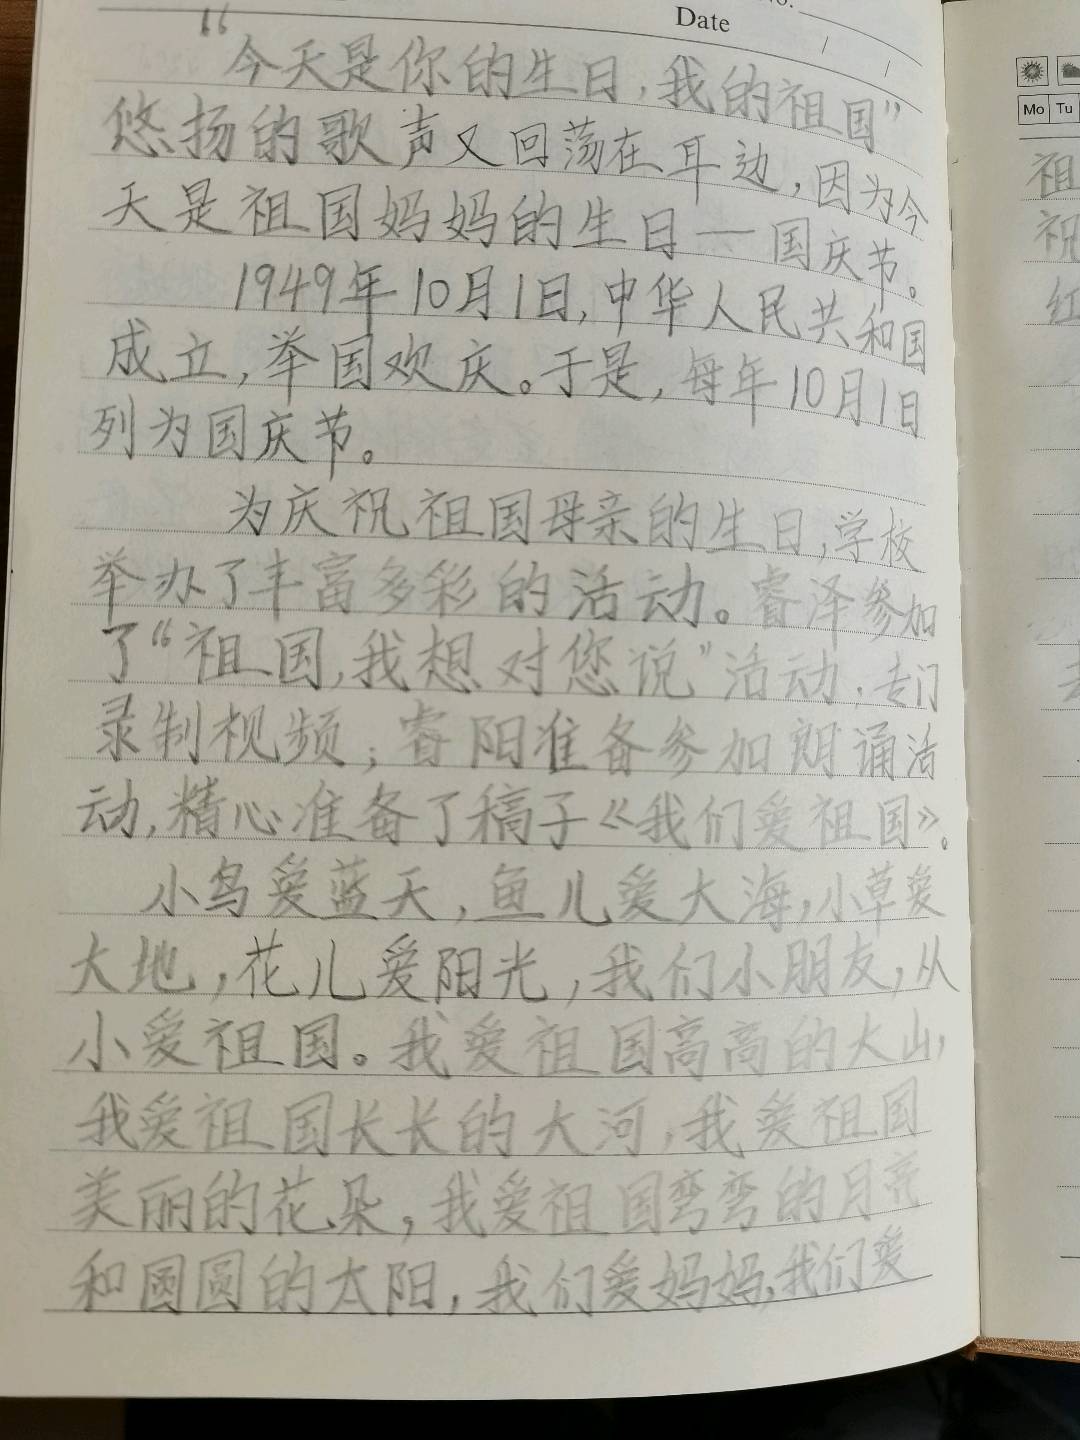 No.
Date
“今天是你的生日，我的祖国”
悠扬的歌声又回荡在耳边，因为今
天是祖国妈妈的生日——国庆节。
1949年10月1日，中华人民共和国
成立，举国欢庆。于是，每年10月1日
列为国庆节。
为庆祝祖国母亲的生日，学校
举办了丰富多彩的活动。睿泽参加
了“祖国，我想对您说”活动，专门
录制视频；睿阳准备参加朗诵活
动，精心准备了稿子《我们爱祖国》。
小鸟爱蓝天，鱼儿爱大海，小草爱
大地，花儿爱阳光，我们小朋友，从
小爱祖国。我爱祖国高高的大山，
我爱祖国长长的大河，我爱祖国
美丽的花朵，我爱祖国弯弯的月亮
和圆圆的太阳，我们爱妈妈，我们爱
Mo Tu
祖
祝
红